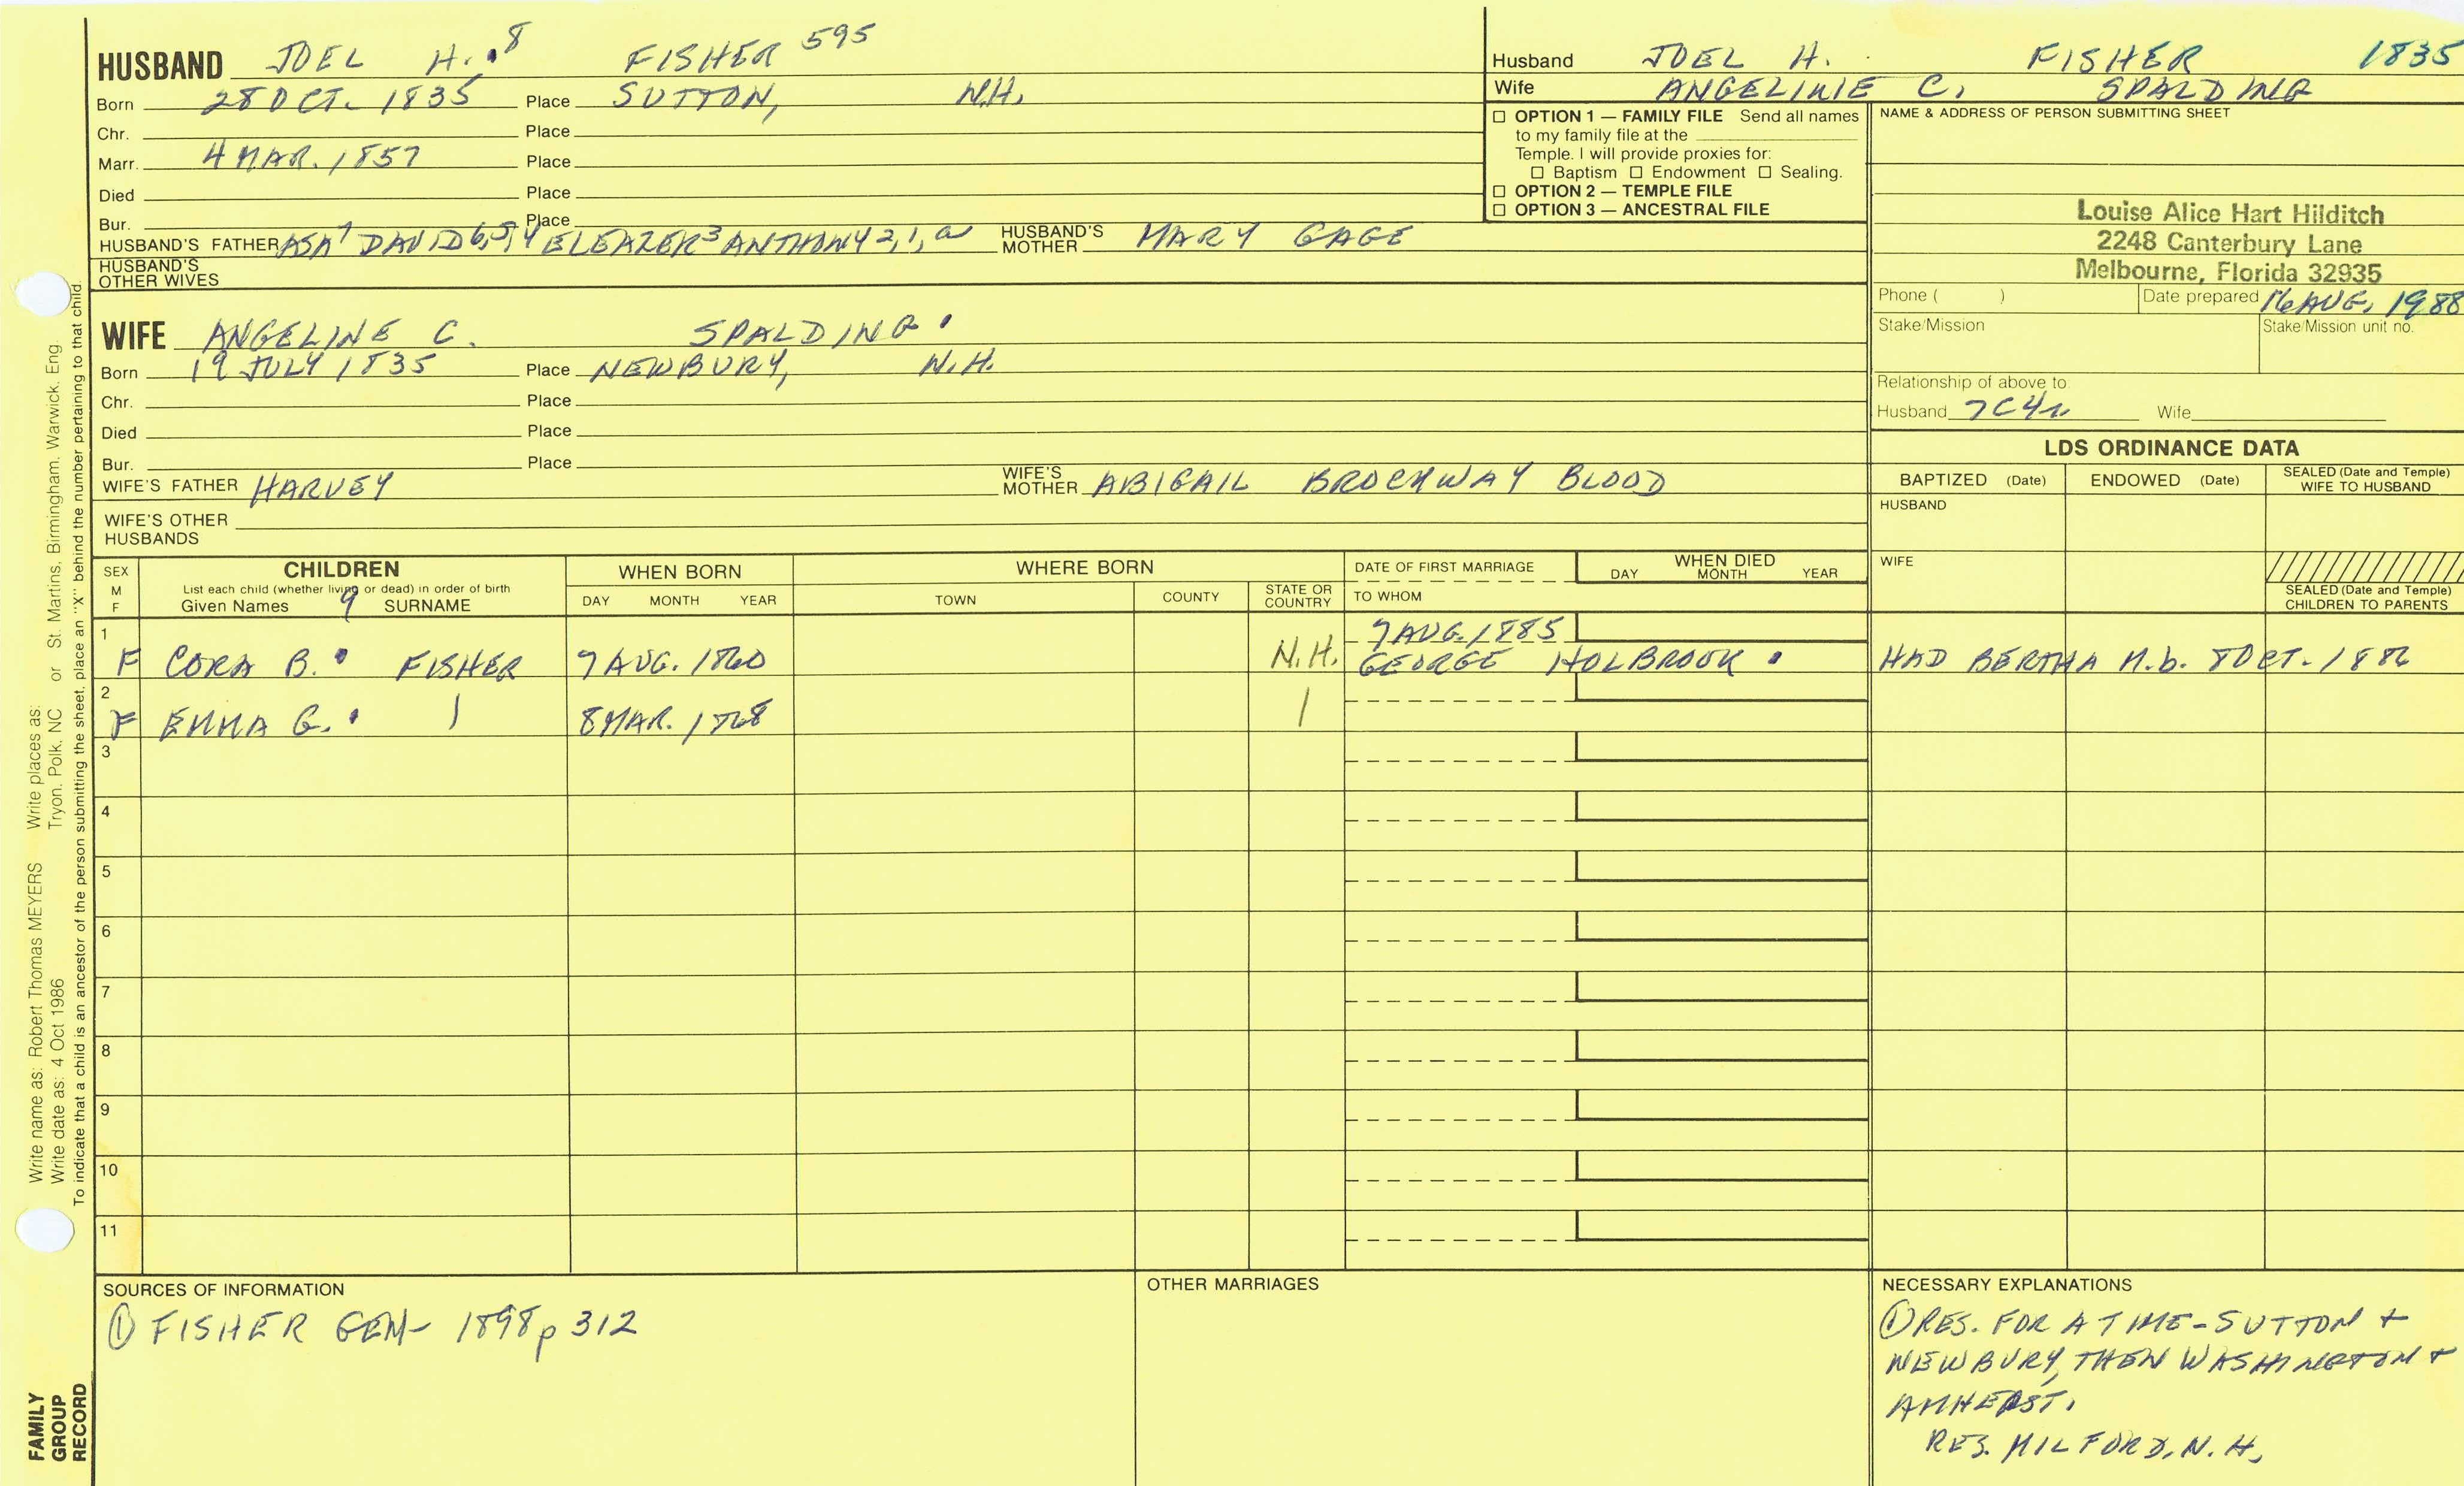 HUSBAND JOEL H. 8 FISHER 595
Born 28 OCT. 1835 Place SUTTON, N.H.
Chr. Place
Marr. 4 MAR. 1857 Place
Died Place
Bur. Place
HUSBAND'S FATHER ASA 7 DAVID 6,5,4 ELEAZER 3 ANTHONY 2,1,a HUSBAND'S MOTHER MARY GAGE
HUSBAND'S OTHER WIVES
WIFE ANGELINE C. SPALDING
Born 19 JULY 1835 Place NEWBURY, N.H.
Chr. Place
Died Place
Bur. Place
WIFE'S FATHER HARVEY WIFE'S MOTHER ABIGAIL BROCKWAY BLOOD
WIFE'S OTHER HUSBANDS
Husband JOEL H. FISHER 1835
Wife ANGELINIE C. SPALDING
☐ OPTION 1 — FAMILY FILE Send all names
to my family file at the
Temple. I will provide proxies for:
☐ Baptism ☐ Endowment ☐ Sealing.
☐ OPTION 2 — TEMPLE FILE
☐ OPTION 3 — ANCESTRAL FILE
NAME & ADDRESS OF PERSON SUBMITTING SHEET
Louise Alice Hart Hilditch
2248 Canterbury Lane
Melbourne, Florida 32935
Phone ( ) Date prepared 16 AUG, 1988
Stake/Mission Stake/Mission unit no.
Relationship of above to:
Husband 7C4r Wife
LDS ORDINANCE DATA
BAPTIZED (Date) ENDOWED (Date) SEALED (Date and Temple) WIFE TO HUSBAND
HUSBAND
WIFE
SEALED (Date and Temple) CHILDREN TO PARENTS
SEX M F CHILDREN WHEN BORN WHERE BORN DATE OF FIRST MARRIAGE WHEN DIED
List each child (whether living or dead) in order of birth
Given Names 9 SURNAME DAY MONTH YEAR TOWN COUNTY STATE OR COUNTRY TO WHOM DAY MONTH YEAR
1 7 AUG. 1885
F CORA B. FISHER 7 AUG. 1860 N.H. GEORGE HOLBROOK HAD BERTHA M. b. 8 OCT. 1886
2
F EMMA G. 8 MAR. 1868
3
4
5
6
7
8
9
10
11
SOURCES OF INFORMATION
① FISHER GEN- 1898 p 312
OTHER MARRIAGES
NECESSARY EXPLANATIONS
① RES. FOR A TIME - SUTTON +
NEWBURY, THEN WASHINGTON +
AMHERST.
RES. MILFORD, N.H.
Write name as: Robert Thomas MEYERS Write places as: St. Martins, Birmingham, Warwick, Eng.
Write date as: 4 Oct 1986 Tryon, Polk, NC or
To indicate that a child is an ancestor of the person submitting the sheet, place an "X" behind the number pertaining to that child.
FAMILY
GROUP
RECORD